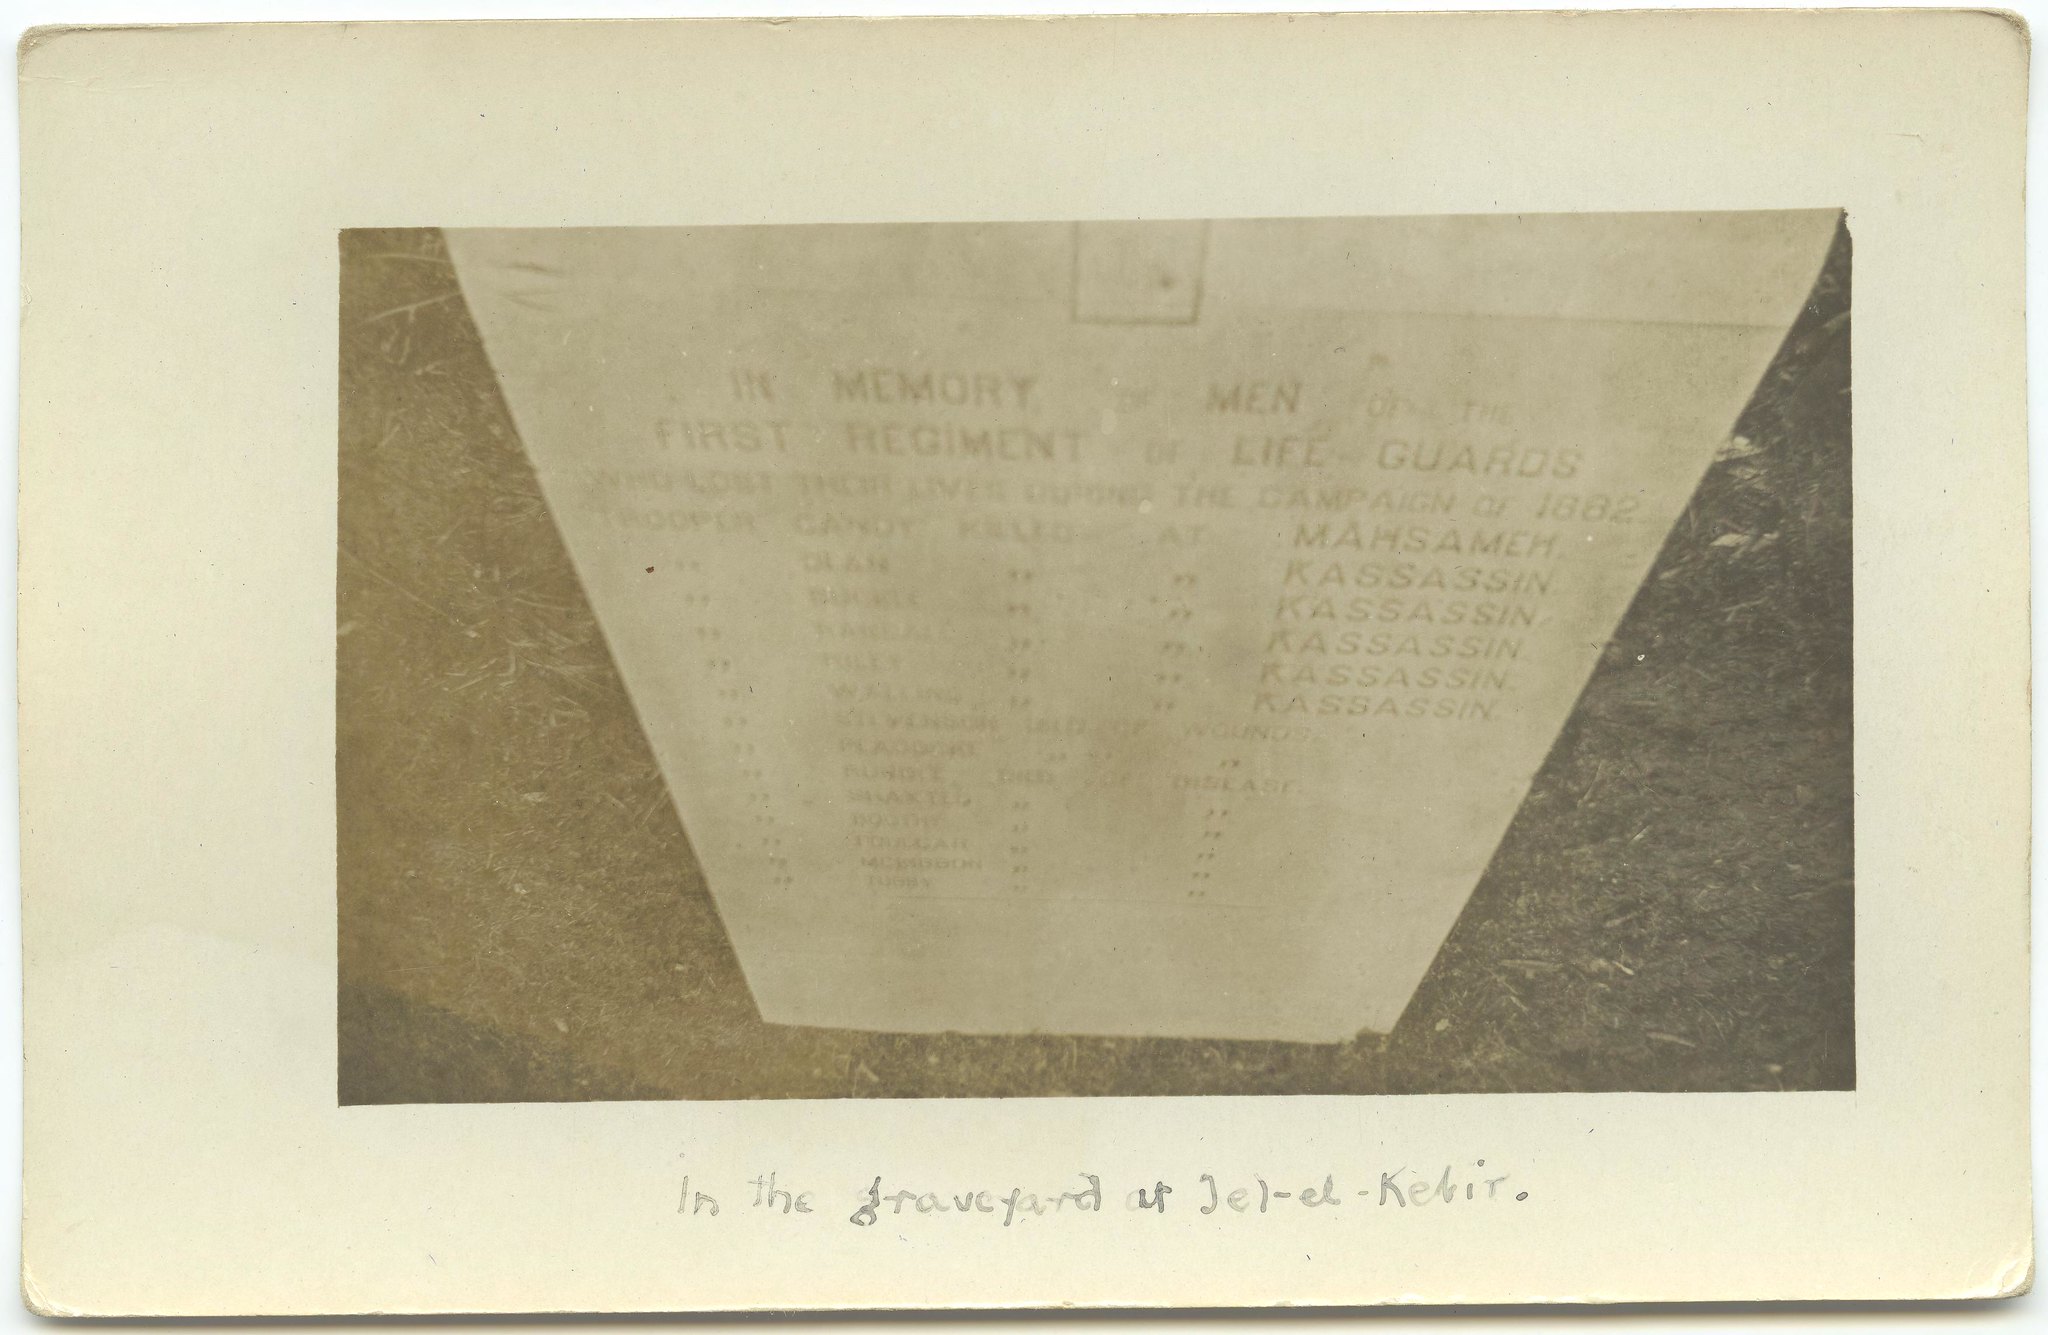 IN MEMORY OF MEN OF THE
FIRST REGIMENT OF LIFE GUARDS
WHO LOST THEIR LIVES DURING THE CAMPAIGN OF 1882
TROOPER CANDY KILLED AT MAHSAMEH.
" " " KASSASSIN.
" " " KASSASSIN.
" " " KASSASSIN.
" " " KASSASSIN.
" " " KASSASSIN.
" STEVENSON DIED OF WOUNDS.
" " "
" DIED OF DISEASE.
" " "
" " "
" " "
" " "
" TUBBY " "
In the graveyard at Tel-el-Kebir.